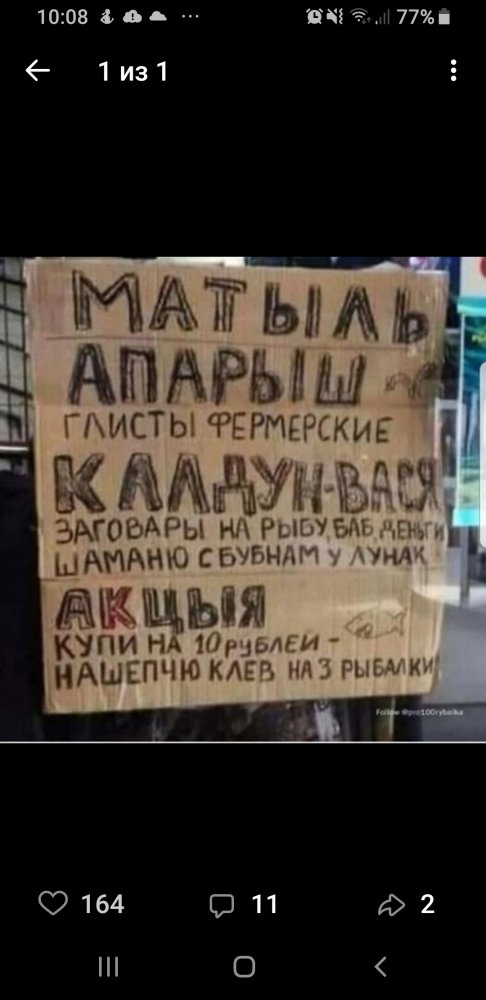 10:08 77%
1 из 1
МАТЫЛЬ
АПАРЫШ
ГЛИСТЫ ФЕРМЕРСКИЕ
КАЛДУН-ВАСЯ
ЗАГОВАРЫ НА РЫБУ, БАБ, ДЕНЬГИ
ШАМАНЮ С БУБНАМ У ЛУНАК
АКЦЫЯ
КУПИ НА 10 рублей -
НАШЕПЧЮ КЛЕВ НА 3 РЫБАЛКИ
Follow @pro100rybalka
164 11 2